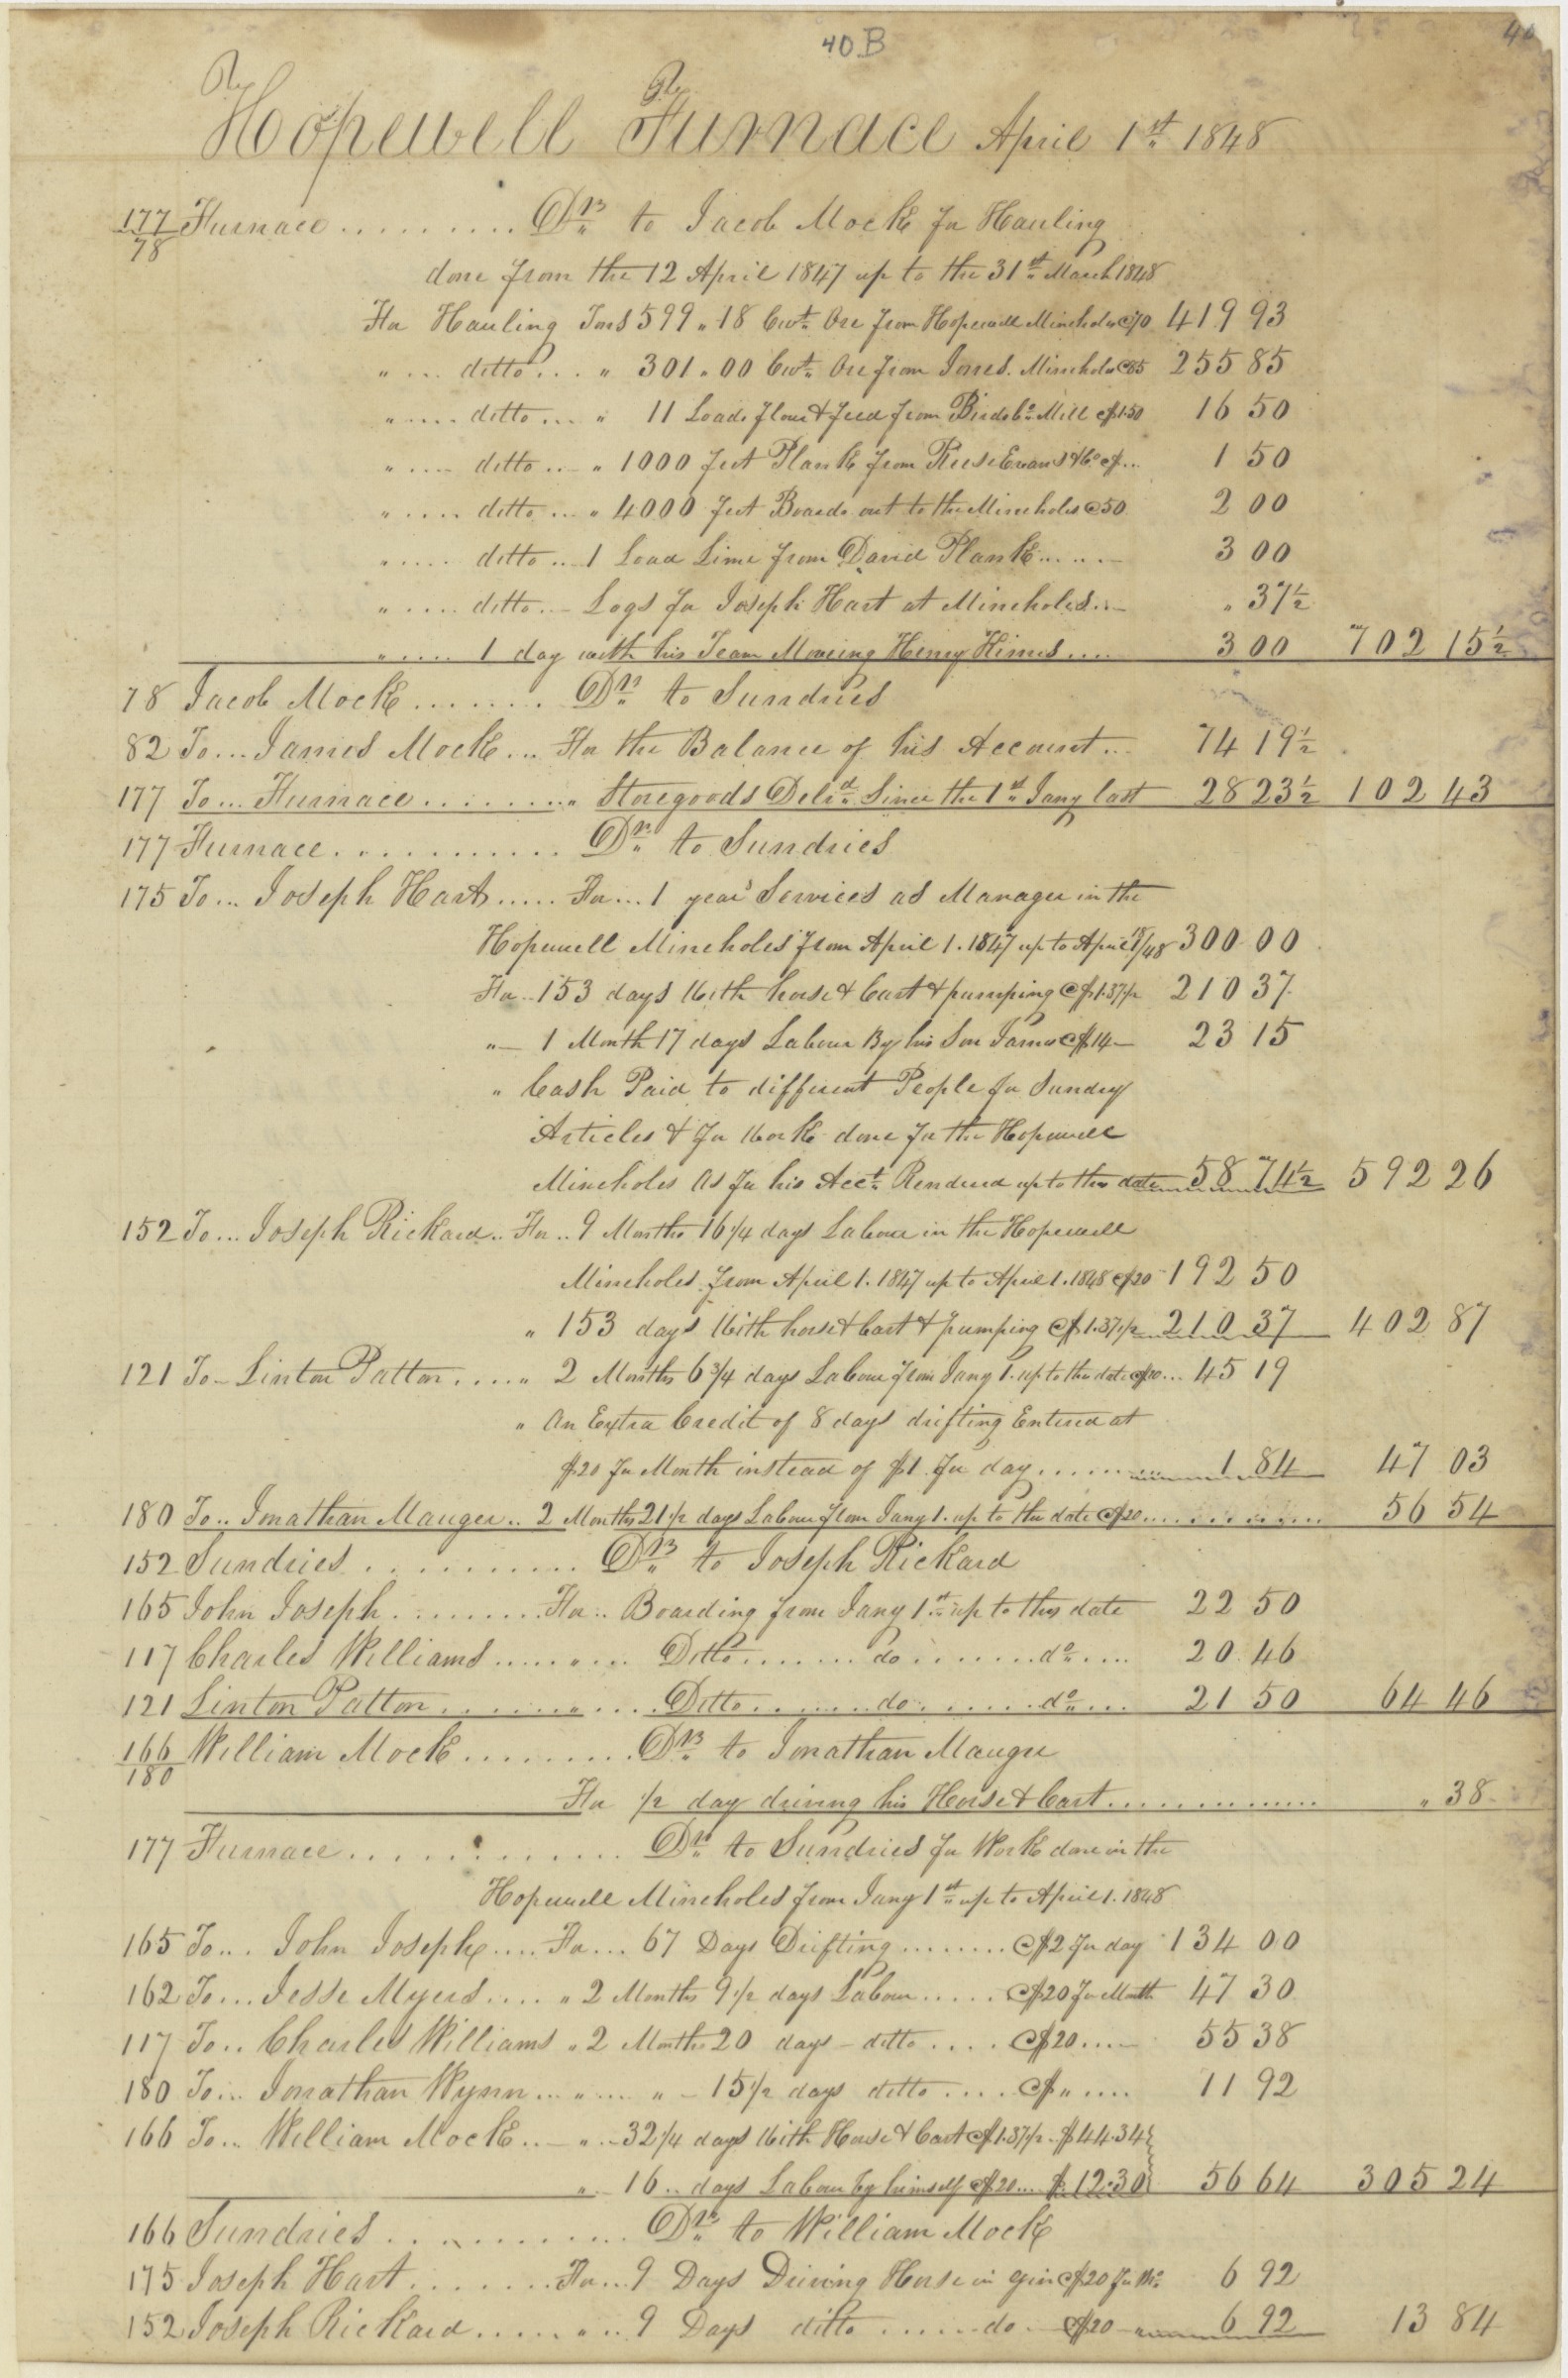 40B
40
Hopewell Furnace April 1st 1848
177/78 Furnace .......... Drs to Jacob Mock For Hauling
done from the 12 April 1847 up to the 31st March 1848
For Hauling Tons 599 " 18 Cwt. Ore from Hopewell Mineholes @70 419 93
" ... ditto ... " 301 " 00 Cwt. Ore from Jones. Mineholes @85 255 85
" .... ditto ... " 11 Loads flour & feed from Birdsbo. Mill @ $1.50 16 50
" .... ditto ... " 1000 feet Plank from Reese Evans & Co @ $... 1 50
" .... ditto ... " 4000 feet Boards out to the Mineholes @50 2 00
" .... ditto ... 1 Load Lime from David Plank ...... 3 00
" .... ditto ... Logs for Joseph Hart at Mineholes ... " 37½
" .... 1 day with his Team Moveing Henry Himes .... 3 00 702 15½
78 Jacob Mock ....... Dr. to Sundries
82 To... James Mock ... For the Balance of his Account ... 74 19½
177 To... Furnace ........ " Storegoods Delivd. Since the 1st Jany last 28 23½ 102 43
177 Furnace ........... Dr. to Sundries
175 To... Joseph Hart ..... For... 1 year's Services as Manager in the
Hopewell Mineholes from April 1. 1847 up to April 1st/48 300 00
For.. 153 days With horse & Cart & pumping @ $1.37½ 210 37
" — 1 Month 17 days Labour By his Son James @ $14 — 23 15
" Cash Paid to different People for Sundry
Articles & for Work done for the Hopewell
Mineholes as per his Acct. Rendered up to this date 58 74½ 592 26
152 To... Joseph Rickard .. For .. 9 Months 16¼ days Labour in the Hopewell
Mineholes from April 1. 1847 up to April 1. 1848 @ $20 192 50
" 153 days With horse & Cart & pumping @ $1.37½ 210 37 402 87
121 To — Linton Patton ..... " 2 Months 6¾ days Labour from Jany 1. up to this date @ $20... 45 19
" An Extra Credit of 8 days drifting Entered at
$20 Per Month instead of $1 Per day ......... 1 84 47 03
180 To.. Jonathan Mauger .. 2 Months 21½ days Labour from Jany 1. up to this date @ $20 ............ 56 54
152 Sundries ........... Drs to Joseph Rickard
165 John Joseph ......... For .. Boarding from Jany 1st up to this date 22 50
117 Charles Williams ..... " ... Ditto ....... do ....... do .... 20 46
121 Linton Patton ....... " .... Ditto ....... do ....... do ... 21 50 64 46
166/180 William Mock ......... Drs to Jonathan Mauger
For ½ day driving his Horse & Cart .............. " 38
177 Furnace ............ Dr. to Sundries for Work done in the
Hopewell Mineholes from Jany 1st up to April 1. 1848
165 To... John Joseph .... For ... 67 Days Drifting ........ @ $2 Per day 134 00
162 To... Jesse Myers .... " 2 Months 9½ days Labour ..... @ $20 Per Month 47 30
117 To.. Charles Williams " 2 Months 20 days — ditto .... @ $20 .... 55 38
180 To... Jonathan Wynn ... " .... " — 15½ days ditto .... @ $ " .... 11 92
166 To.. William Mock ... " .. 32¼ days With Horse & Cart @ $1.37½ .. $44.34
" 16 .. days Labour by himself @ $20 ... $ 12.30 56 64 305 24
166 Sundries ............ Drs to William Mock
175 Joseph Hart ....... For ... 9 Days Driving Horse in Gin @ $20 Per Mo. 6 92
152 Joseph Rickard ..... " .. 9 Days ditto ...... do .. @ $20 6 92 13 84